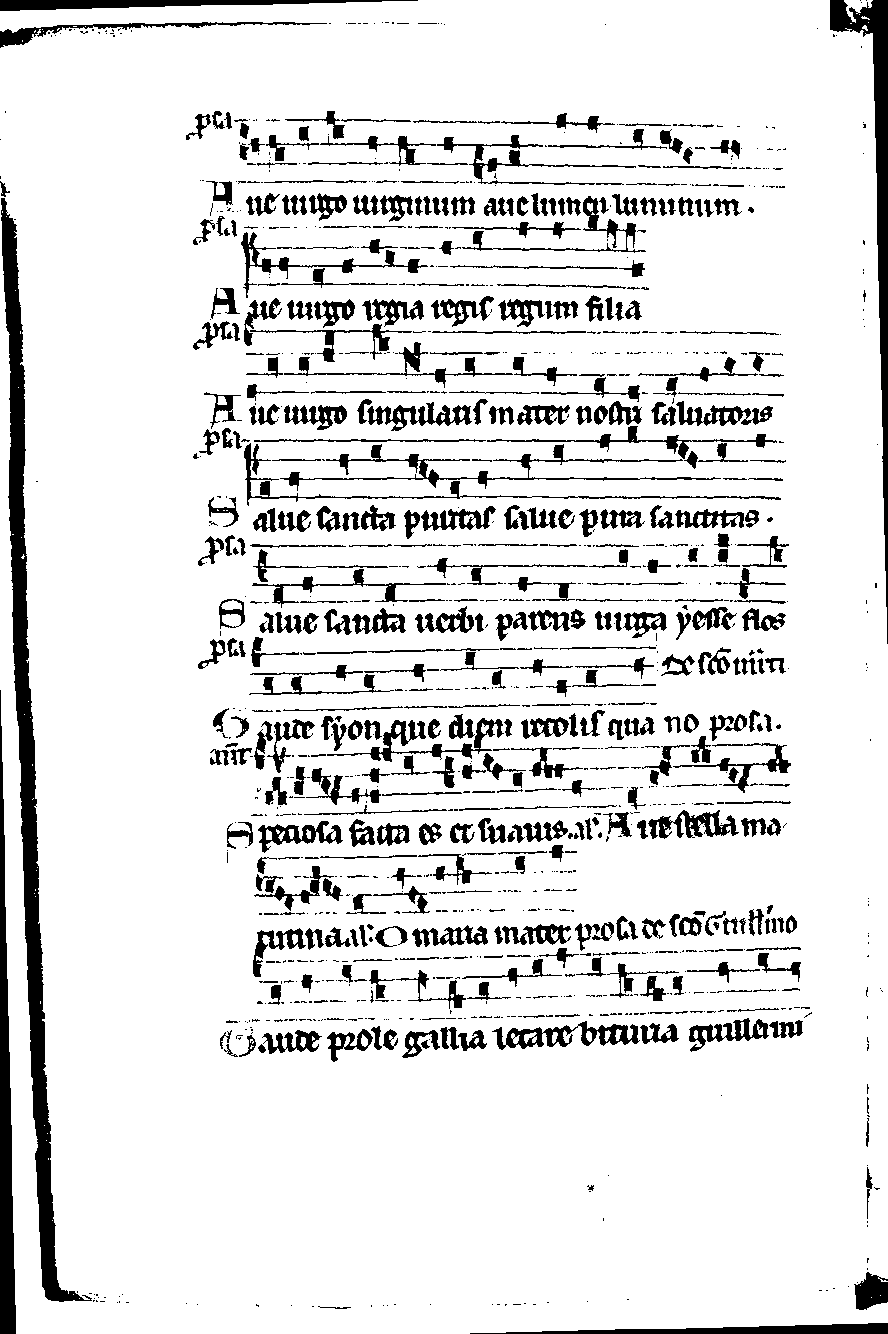 psa
Aue uirgo uirginum aue lumen luminum.
psa
Aue uirgo regia regis regum filia
psa
Aue uirgo singularis mater nostri saluatoris
psa
Salue sancta puritas salue pura sanctitas.
psa
Salue sancta uerbi parens uirga yesse flos
psa
De sco
Gaude syon que diem recolis qua no prosa.
ant
Speciosa facta es et suauis. al'. Aue stella ma
tutina al'. O maria mater prosa de sco Guillmo
Gaude prole gallia letare bituria guillermi